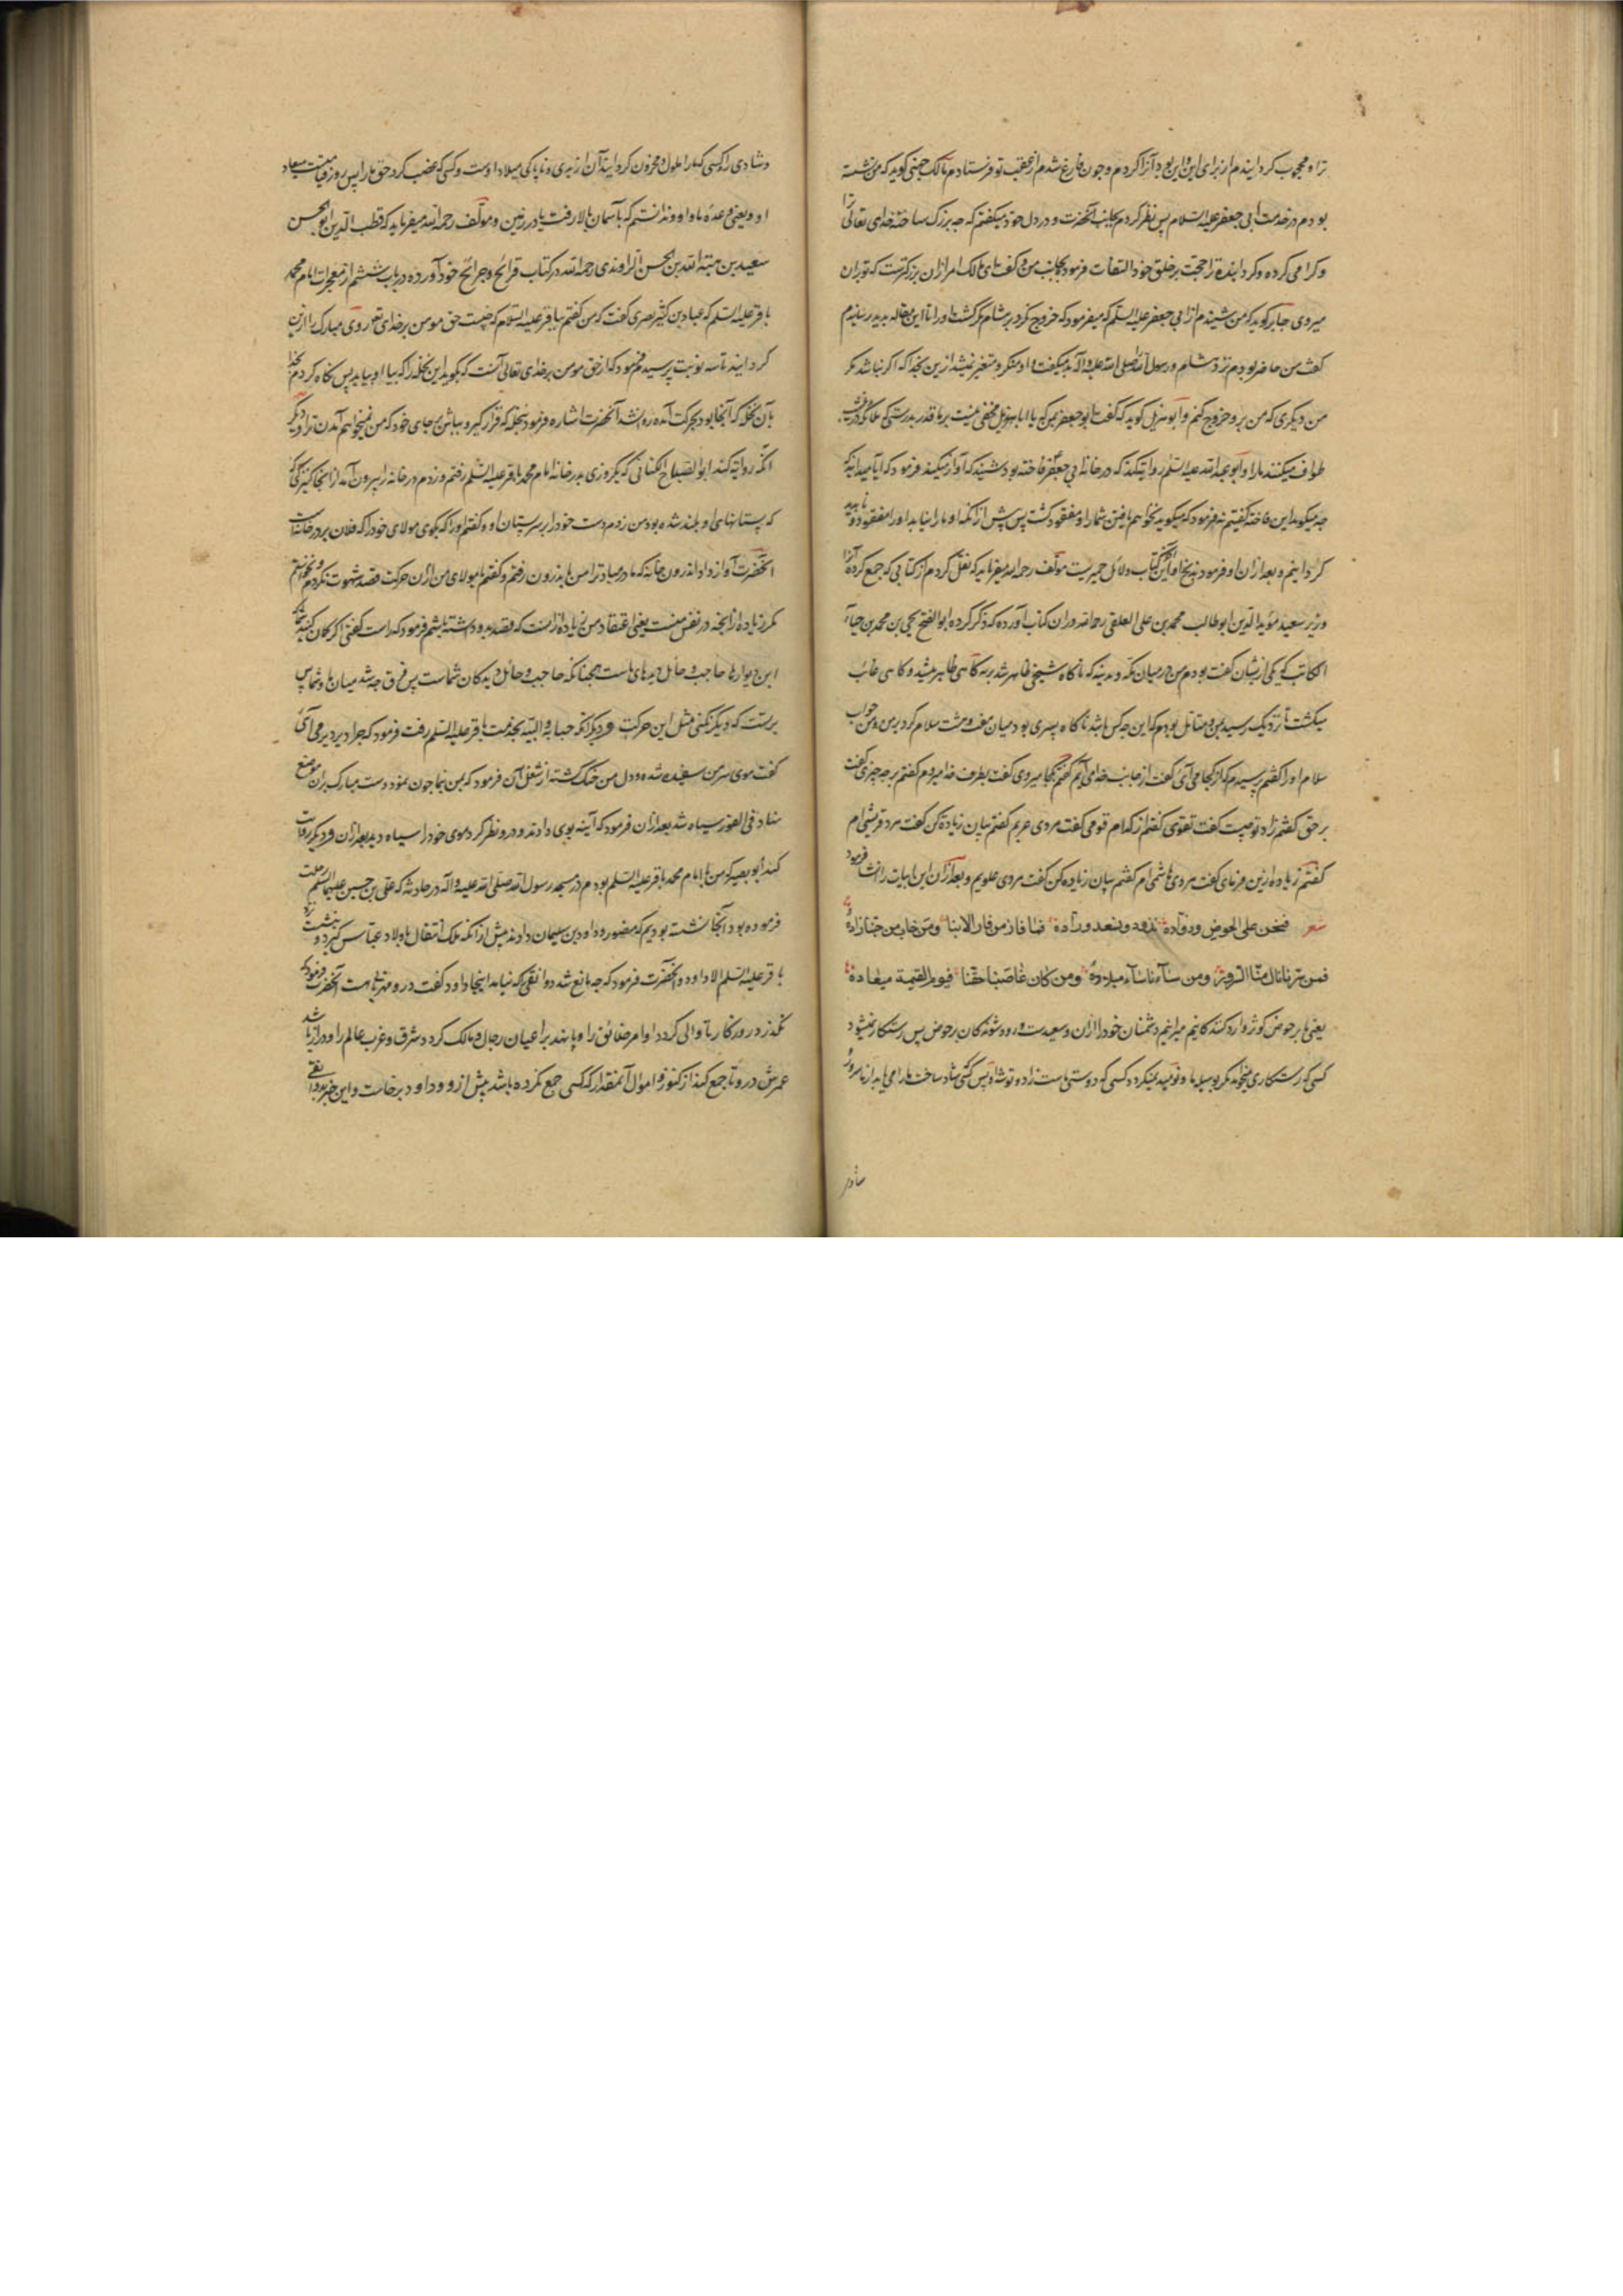 ترا و محجوب گردانیدم از برای این و این بود آنرا کردم و چون فارغ شدم از عقب تو فرستادم مالک جهنی گوید که من نشسته
بودم در خدمت ابی جعفر علیه السلام پس نظر کردم بجانب آنحضرت و در دل خود میگفتم که چه بزرگ ساخته خدای تعالی ترا
و گرامی کرده و گردانیده ترا حجت بر خلق خود التفات فرمود بجانب من و گفت ای مالک امر ازان بزرگترست که تو بران
میروی جابر گوید که من شنیدم از ابی جعفر علیه السلم که میفرمود که خروج نکرد بر هشام
گفت من حاضر بودم نزد هشام و رسول الله صلی الله علیه و آله بد میگفت و او منکر و متغیر نمیشد ازین بخدا که اگر نباشد مگر
من و دیگری که من برو خروج کنم و ابو هزیل گوید که گفت ابو جعفر بمن که یا ابا هزیل مخفی نیست بر ما قدر بدرستی که ملائکه در شب
طواف میکنند ما را و ابو عبد الله علیه السلم روایتکند که در خانه ابی جعفر فاخته بود شنیدند که آواز میکند فرمود که ایا میدانید که
چه میگوید این فاخته گفتیم نه فرمود که میگوید نخواهم یافتن شما را و مفقود گشت پس پیش از آنکه او ما را نیابد او را مفقود و ناپدید
گردانیم و بعد ازان او فرمود بذبح او این کتاب دلائل حمیریست مولف رحمه الله میفرماید که نقل کردم از کتابی که جمع کرده آنرا
وزیر سعید مؤید الدین ابو طالب محمد بن علی العلقمی رحمه الله دران کتاب آورده که ذکر کرده ابو الفتح یحیی بن محمد بن حیاء
الکاتب که یکی ازیشان گفت بودم من در میان مکه و مدینه که ناگاه شبحی ظاهر شد بر من که گاهی ظاهر میشد و گاهی غائب
میگشت تا نزدیک رسید بمن و متامل بودم که این چه کس باشد ناگاه پسری بود میان هفت و هشت سلام کرد بر من و من جواب
سلام او را گفتم پرسیدم که از کجا می آئی گفت از جانب خدا می آیم گفتم بکجا میروی گفت بطرف خدا میروم گفتم بر چه چیزی گفت
بر حق گفتم زاد تو چیست گفت تقوی گفتم از کدام قومی گفت مردی عربم گفتم بیان زیاده کن گفت مرد قریشی ام
گفتم زیاده ازین فرمای گفت مردی هاشمی ام گفتم بیان زیاده کن گفت مردی علویم و بعد ازان این ابیات را انشا فرمود
شعر فنحن علی الحوض روّاده نذود و نسعد ورّاده فما فاز من فاز الا بنا و من خاب من حبنا زاده
فمن سرنا نال منا السرور و من سآءنا سآء میلاده و من کان غاصبنا حقنا فیوم القیمة میعاده
یعنی ما بر حوض کوثر وارد کنندگانیم میرانیم دشمنان خود را ازان و سعیدست وارد شوندگان بر حوض پس رستگار نمیشود
کسی که رستگاری میخواهد مگر بوسیله ما و نومید نمیگردد کسی که دوستی ماست زاد و توشه او پس کسی که شاد ساخت ما را می یابد از ما سرور
شادی
وشادی را و کسی که ما را ملول و محزون گردانید آن از بدی و ناپاکی میلاد اوست و کسی که غصب کرد حق ما را پس روز قیامت میعاد
او و یعنی وعده ما و او و ندانستم که بآسمان بالا رفت یا در زمین و مولف رحمه الله میفرماید که قطب الدین ابو الحسن
سعید بن هبة الله بن الحسن الراوندی رحمه الله در کتاب خرائج و جرائح خود آورده در باب ششم از معجزات امام محمد
باقر علیه السلم که عباد بن کثیر بصری گفت که من گفتم بباقر علیه السلام که چیست حق مومن بر خدای تع روی مبارک را ازان
گردانید تا سه نوبت پرسیدم فرمود که از حق مومن بر خدای تعالی آنست که بگوید این نخله را که بیا او بیاید پس نگاه کردم بخدا
بآن نخله که آنجا بود بحرکت آمده روانه شد آنحضرت اشاره فرمود بنخله که قرار گیر و بباش بجای خود که من نمیخواهم آمدن ترا و دیگر
آنکه روایه کند ابو الصباح الکنانی که یکروزی بدر خانه امام محمد باقر علیه السلم رفتم و زدم در خانه را بیرون آمد از آنجا کنیزکی
که پستانهای او بلند شده بود من زدم دست خود را بر سر پستان او و گفتم او را که بگوی مولای خود را که فلان بر در خانه است
آنحضرت آواز داد از درون خانه که مادر مباد ترا من باندرون رفتم و گفتم یا مولای من ازین حرکت قصد شهوت نکردم و نخواستم
مگر زیاده از آنچه در نفس منست یعنی اعتقاد من زیاده ازانست که قصد بد داشته باشم فرمود که راست گفتی اگر گمان کنید شما
این دیوارها حاجب و حائل دیدهای ماست همچنانکه حاجب و حائل دیدگان شماست پس فرق چه شد میان ما و شما پس
برتست که دیگر نکنی مثل این حرکت و دیگر آنکه حبابه والبیه بخدمت باقر علیه السلم رفت فرمود که چرا دیر دیر می آئی
گفت موی سر من سفید شده و دل من تنگ گشته از شغل آن فرمود که بمن بنما چون نمود دست مبارک بران موضع
نهاد فی الفور سیاه شد بعد ازان فرمود که آینه بوی دادند و درو نظر کرد موی خود را سیاه دید بعد ازان و دیگر روایت
کند ابو بصیر که من با امام محمد باقر علیه السلم بودم در مسجد رسول الله صلی الله علیه و اله در حادثه که علی بن حسین علیهما السلم رحلت
فرموده بود آنجا نشسته بودیم که منصور و داود بن سلیمان در آمدند پیش از آنکه ملک انتقال باولاد عباس گیرد و ننشست نزد
باقر علیه السلم الا داود و آنحضرت فرمود که چه مانع شد دوانقی که نیامد اینجا داود گفت درو مهتر ماست آنحضرت فرمود که
نگذرد روزگار تا والی گردد او امر خلائق را و پا نهد بر اعیان رجال و مالک گردد شرق و غرب عالم را و دراز باشد
عمرش درو تا جمع کند از کنوز و اموال آنمقدار که کسی جمع نکرده باشد پیش ازو و داود برخاست و این خبر بدوانقی